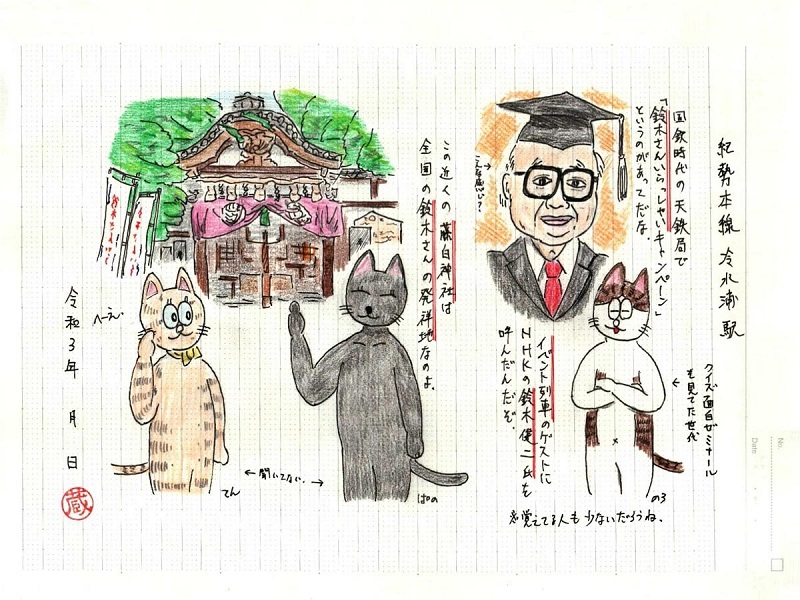 紀勢本線 冷水浦駅
国鉄時代の天鉄局で
「鈴木さんいらっしゃいキャンペーン」
というのがあってだな、
こんな感じ?→
イベント列車のゲストに
NHKの鈴木健二氏を
呼んだんだぞ。
クイズ面白ゼミナール
も見てた世代
↓
のろ
覚えてる人も少ないだろうね、
この近くの藤白神社は
全国の鈴木さんの発祥地なのよ。
ぱの
←聞いてない、→
てん
へーえ、
令和3年 月 日
蔵
No.
Date